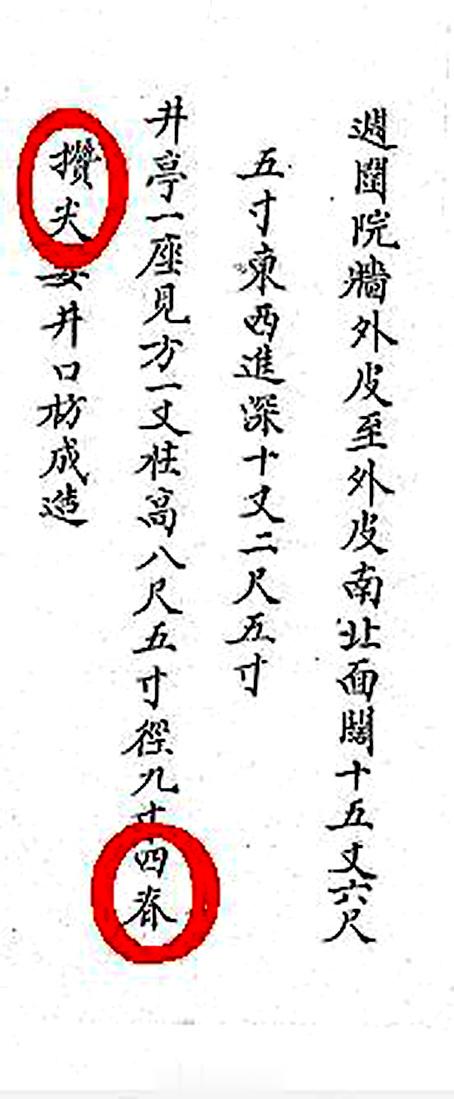 週圍院牆外皮至外皮南北面闊十五丈六尺
五寸東西進深十丈二尺五寸
井亭一座見方一丈柱高八尺五寸徑九寸四脊
攢尖安井口枋成造